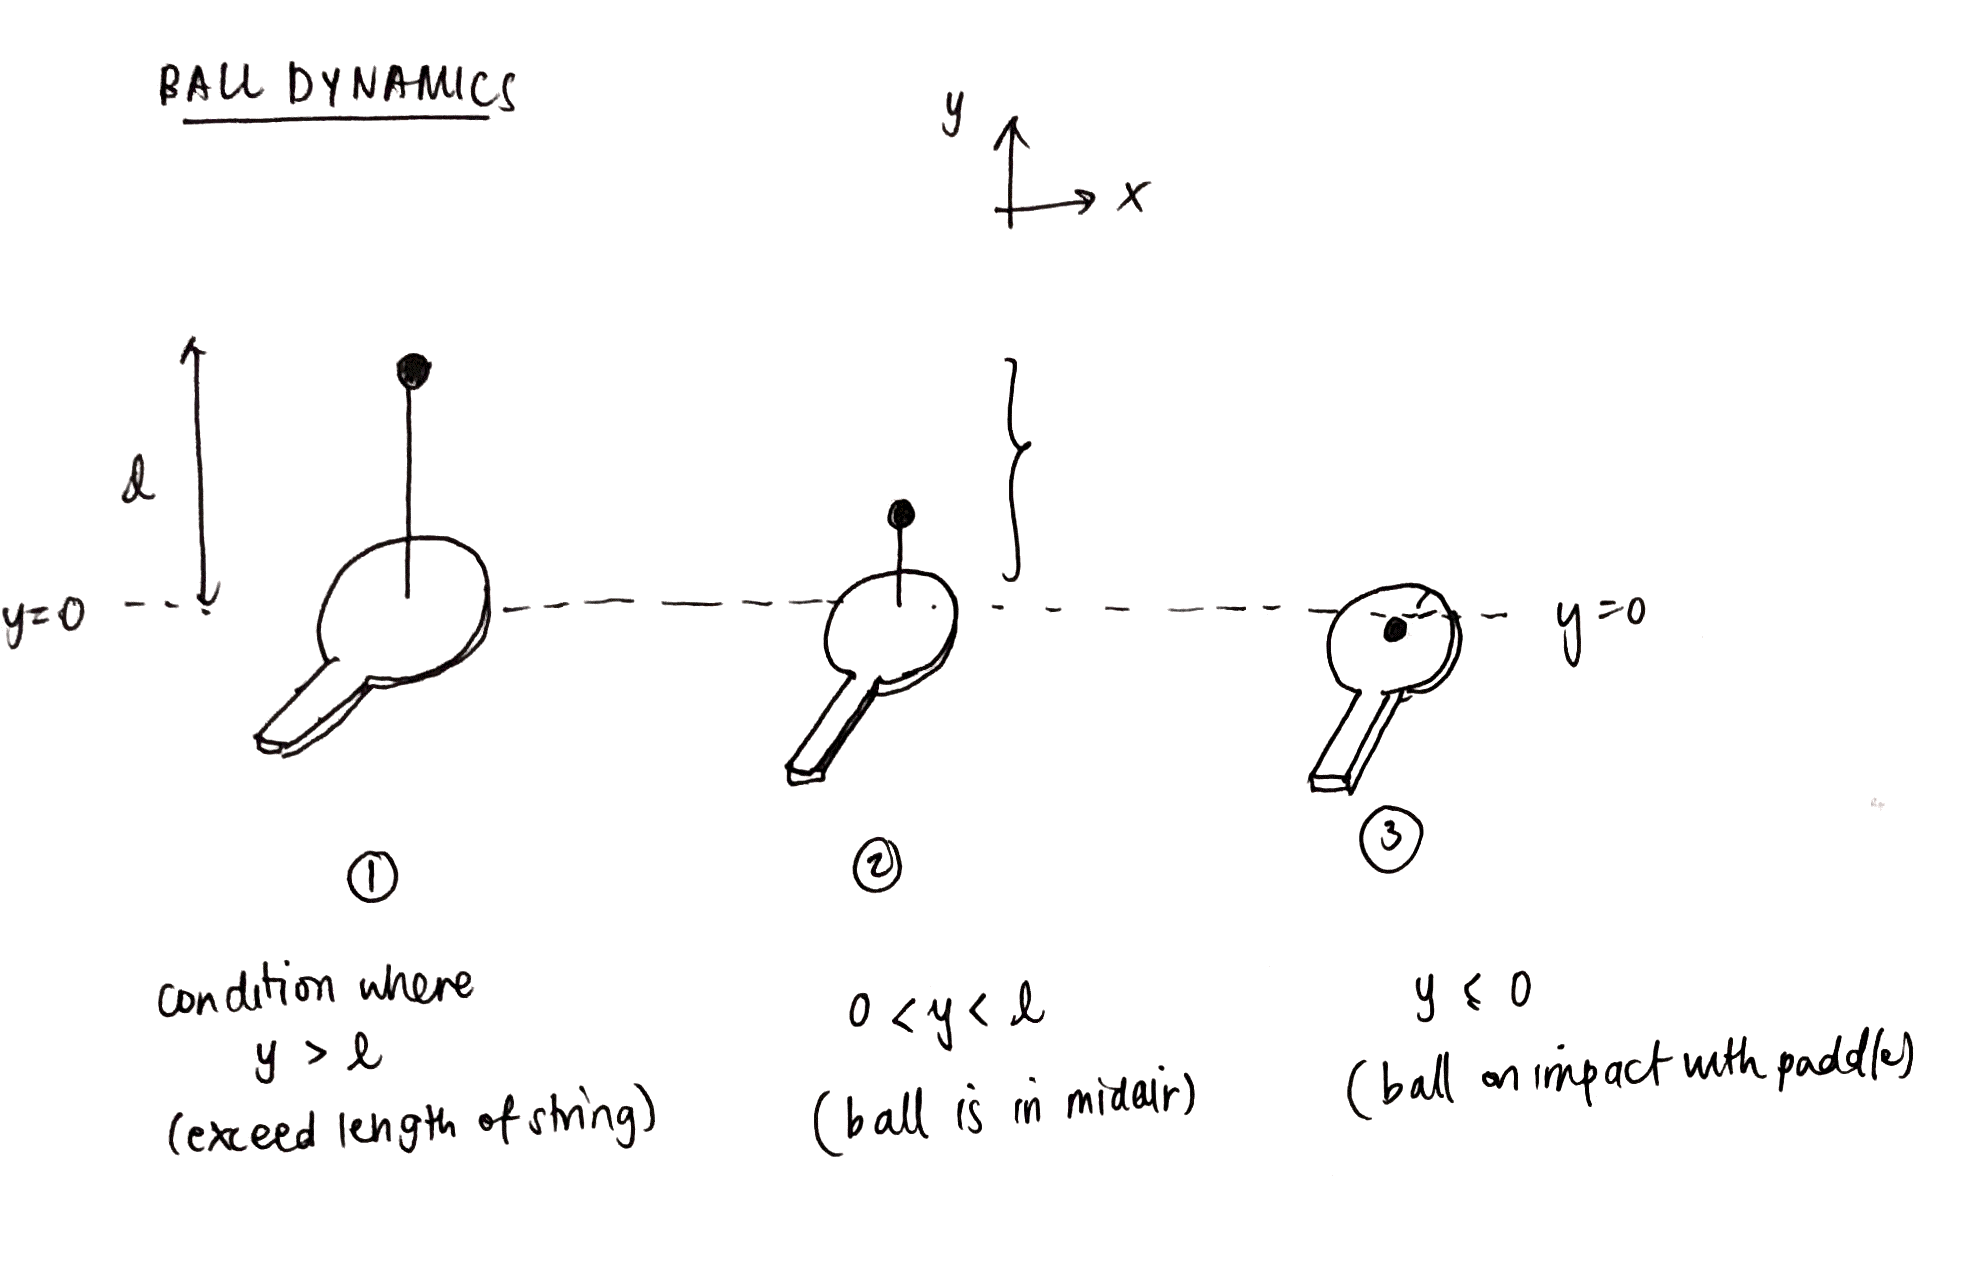 BALL DYNAMICS
y
x
l
y=0
y=0
1
2
3
condition where
y > l
(exceed length of string)
0 < y < l
(ball is in midair)
y ≤ 0
(ball on impact with paddle)